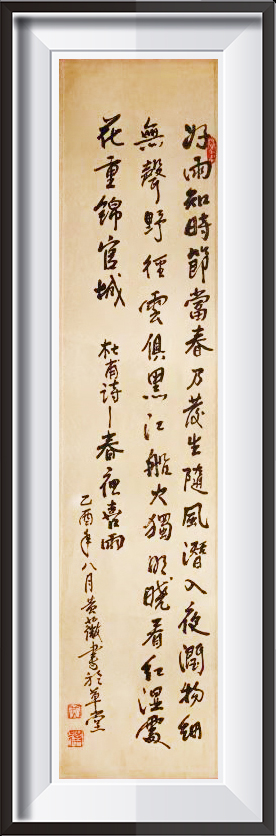 好雨知時節當春乃發生隨風潛入夜潤物細
無聲野徑雲俱黑江船火獨明曉看紅濕處
花重錦官城
杜甫詩春夜喜雨
乙酉年八月黃薇書於草堂